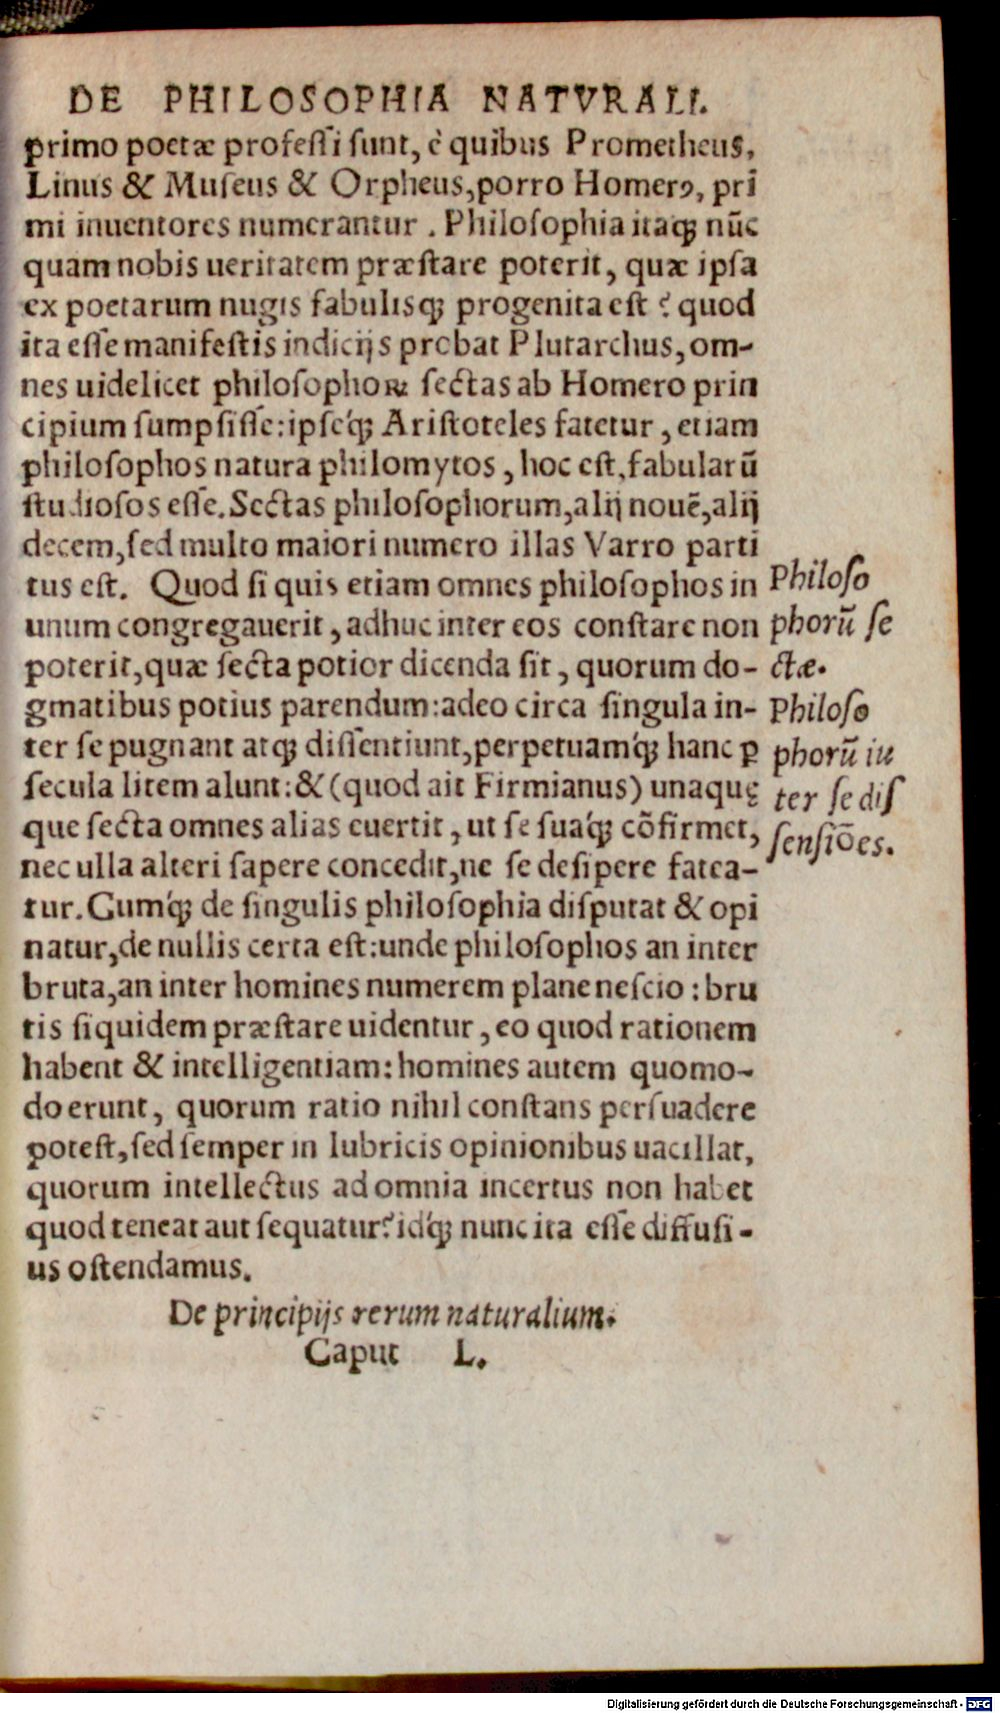 DE PHILOSOPHIA NATVRALI.
primo poetæ professi sunt, è quibus Prometheus,
Linus & Museus & Orpheus, porro Homerꝯ, pri
mi inuentores numerantur. Philosophia itaqꝫ nūc
quam nobis ueritatem præstare poterit, quæ ipsa
ex poetarum nugis fabulisqꝫ progenita est? quod
ita esse manifestis indicijs probat Plutarchus, om-
nes uidelicet philosophoꝝ sectas ab Homero prin
cipium sumpsisse: ipseq́ꝫ Aristoteles fatetur, etiam
philosophos natura philomytos, hoc est, fabularū
studiosos esse. Sectas philosophorum, alij nouē, alij
decem, sed multo maiori numero illas Varro parti
tus est. Quod si quis etiam omnes philosophos in
unum congregauerit, adhuc inter eos constare non
poterit, quæ secta potior dicenda sit, quorum do-
gmatibus potius parendum: adeo circa singula in-
ter se pugnant atqꝫ dissentiunt, perpetuamq́ꝫ hanc ꝑ
secula litem alunt: & (quod ait Firmianus) unaquę
que secta omnes alias euertit, ut se suaq́ꝫ cõfirmet,
nec ulla alteri sapere concedit, ne se desipere fatea-
tur. Cumq́ꝫ de singulis philosophia disputat & opi
natur, de nullis certa est: unde philosophos an inter
bruta, an inter homines numerem plane nescio: bru
tis siquidem præstare uidentur, eo quod rationem
habent & intelligentiam: homines autem quomo-
do erunt, quorum ratio nihil constans persuadere
potest, sed semper in lubricis opinionibus uacillat,
quorum intellectus ad omnia incertus non habet
quod teneat aut sequatur? idq́ꝫ nunc ita esse diffusi-
us ostendamus.
De principijs rerum naturalium.
Caput L.
Philoso
phorū se
ctæ.
Philoso
phorū iu
ter se dis
sensiōes.
Digitalisierung gefördert durch die Deutsche Forschungsgemeinschaft - DFG